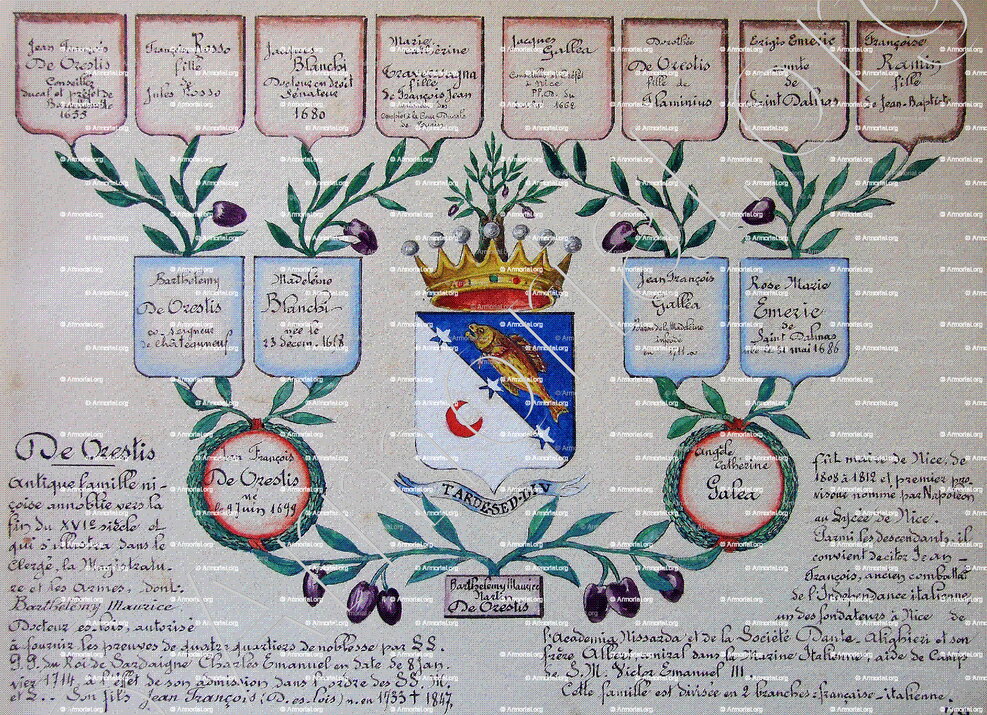 Jean François
De Orestis
Conseiller
ducal et préfet de
Barcelonette
1633
Françoise Rosso
fille
de
Jules Rosso
Jacques
Blanchi
Docteur en droit
Sénateur
1680
Marie
Catherine
Travessagna
fille
de François Jean
Jacques
Galléa
1668
Dorothée
De Orestis
fille de
Flaminius
Erigis Emeric
comte
de
Saint Dalmas
Françoise
Ramin
fille
de Jean-Baptiste
Barthélemy
De Orestis
co-seigneur
de châteauneuf
Madeleine
Blanchi
née le
23 décem. 1678
Jean François
Galléa
Rose Marie
Emeric
de
Saint Dalmas
née le 31 mai 1686
Jean François
De Orestis
né
le 9 Juin 1699
Angèle
Catherine
Galea
TARDE SED DIV
Barthélemy Maurice
De Orestis
De Orestis
Antique famille ni-
çoise annoblie vers la
fin du XVIe siècle et
qui s'illustra dans le
Clergé, la Magistratu-
re et les Armes, dont:
Barthélemy Maurice,
Docteur es lois, autorisé
à fournir les preuves de quatre quartiers de noblesse par SS.
G.G. du Roi de Sardaigne Charles Emanuel en date de 8 Jan
vier 1714, à l'éfet de son admission dans l'ordre des SS. M.
et L.. Son fils Jean François (D. es lois) n. en 1753 † 1847,
fut maire de Nice, de
1808 à 1812 et premier pro
viseur nommé par Napoléon
au Lycée de Nice.
Parmi les descendants, il
convient de citer Jean
François, ancien combattant
de l'Indépendance italienne,
un des fondateurs à Nice de
l'Academia Nissarda et de la Société Dante Alighieri et son
frère Albert amiral dans la Marine Italienne, aide de Camps
de S.M. Victor Emanuel III
Cette famille est divisée en 2 branches: française - italienne.
© Armorial.org